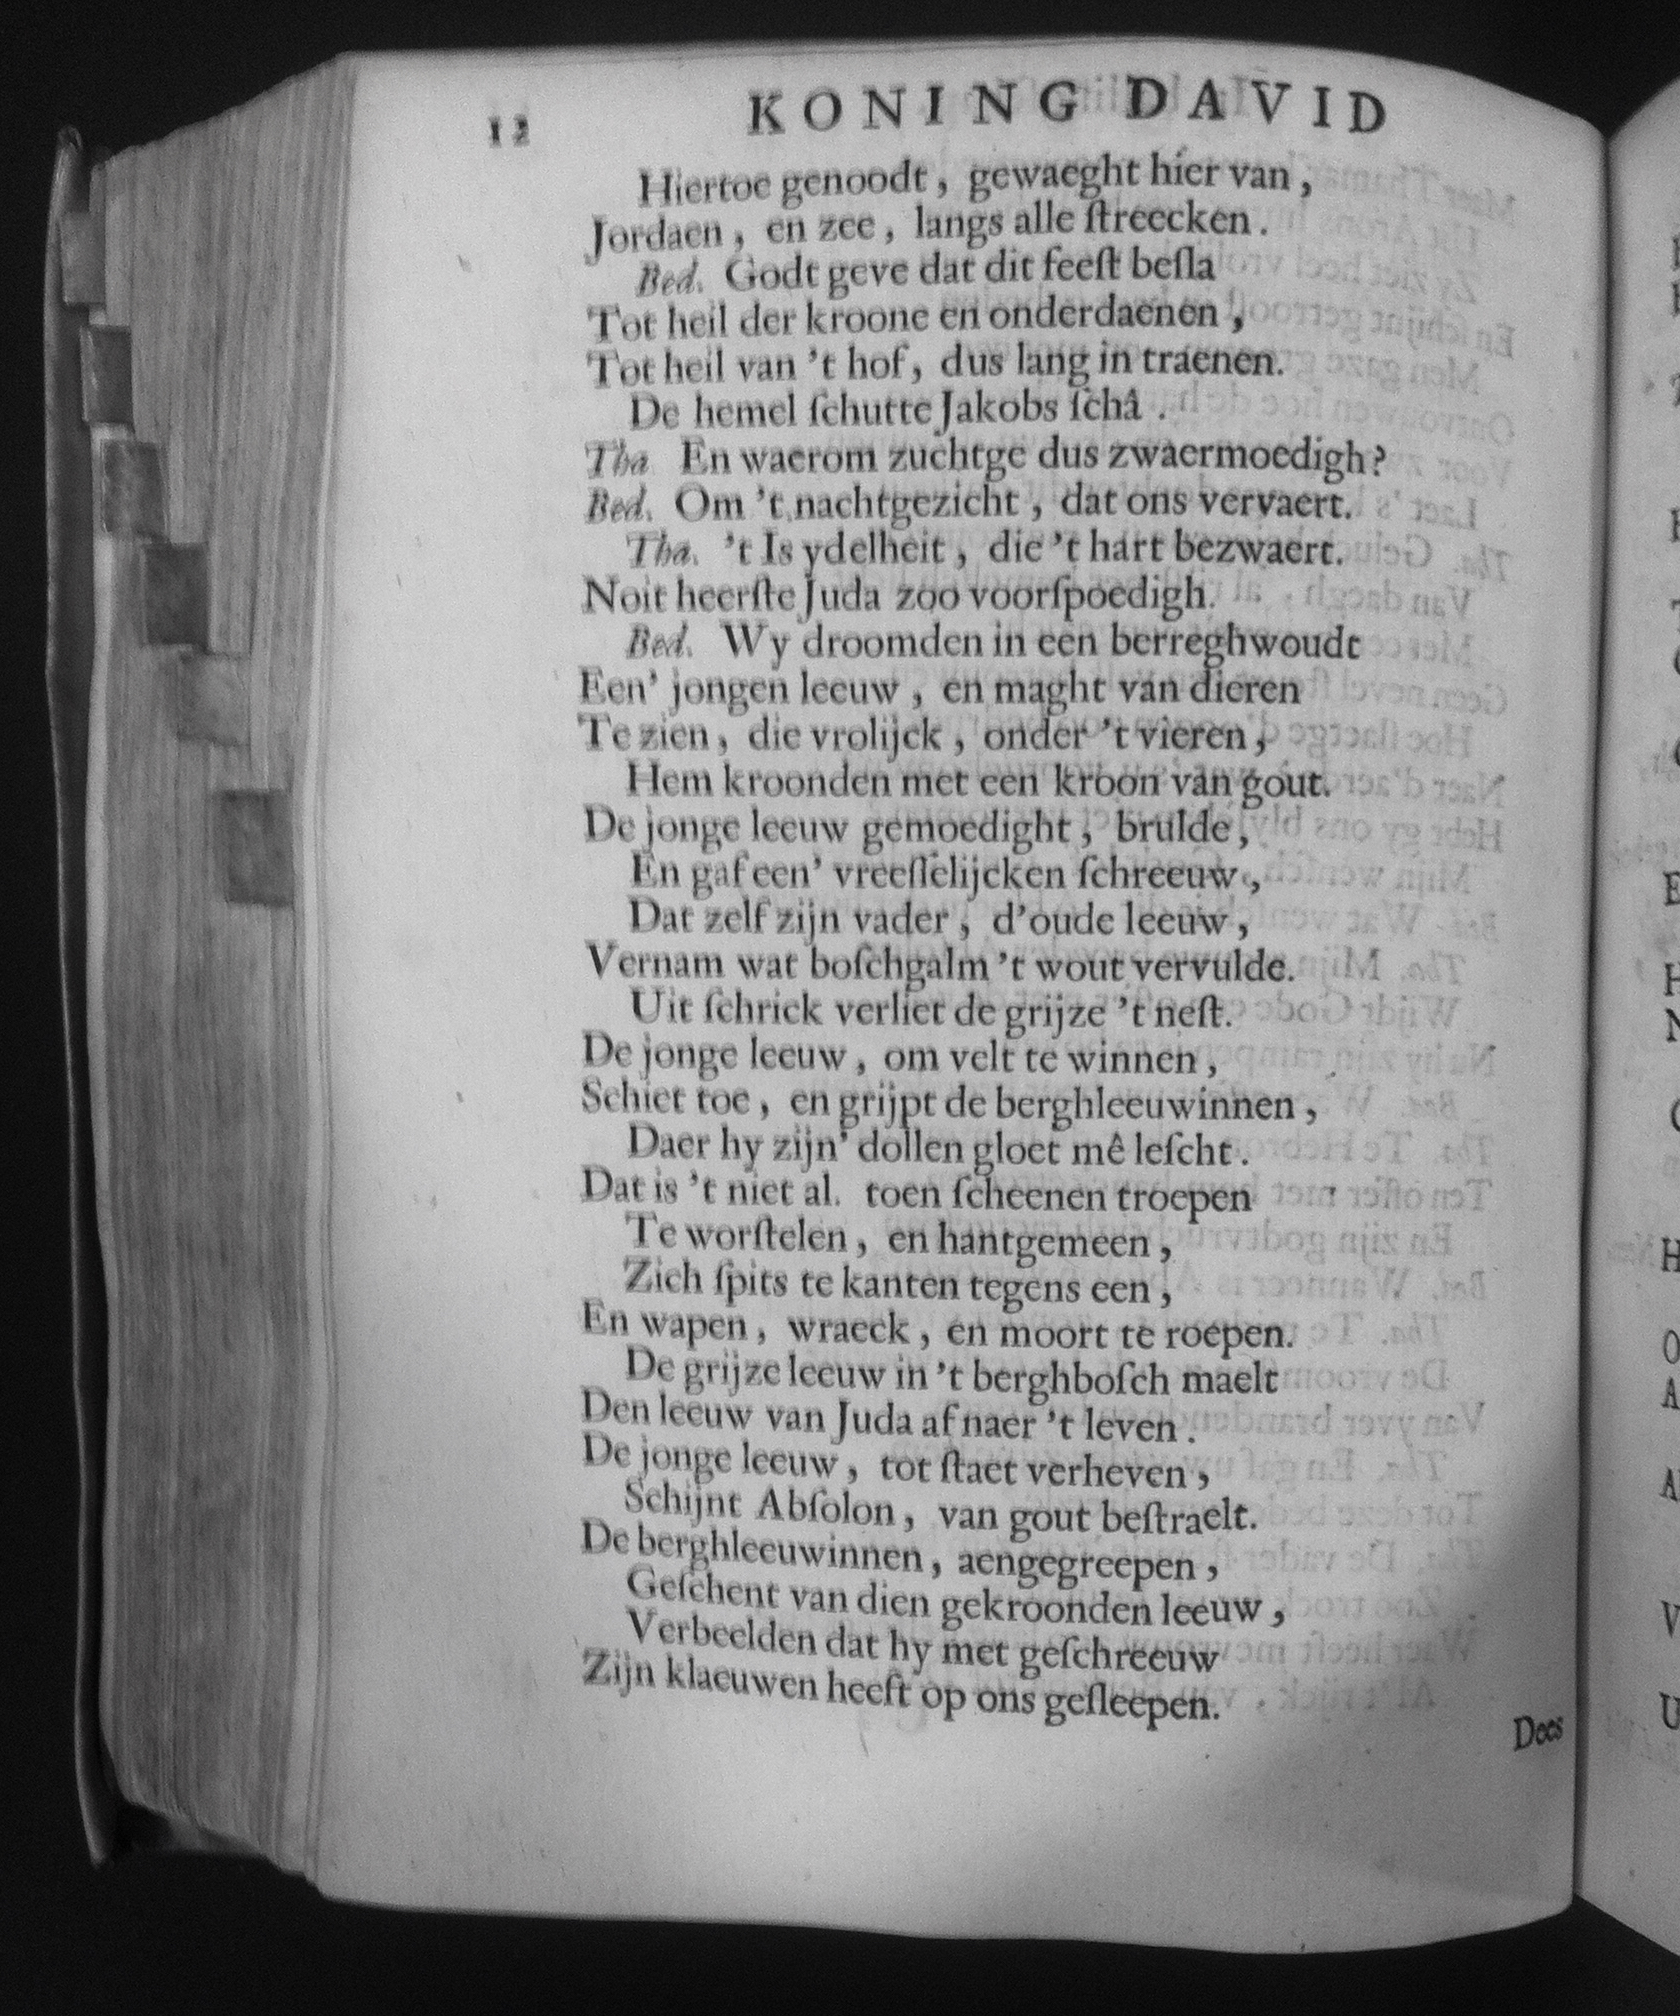 12 KONING DAVID
Hiertoe genoodt, gewaeght hier van,
Jordaen, en zee, langs alle ſtreecken.
Bed. Godt geve dat dit feeſt beſla
Tot heil der kroone en onderdaenen,
Tot heil van 't hof, dus lang in traenen.
De hemel ſchutte Jakobs ſchâ.
Tha En waerom zuchtge dus zwaermoedigh?
Bed. Om 't nachtgezicht, dat ons vervaert.
Tha. 't Is ydelheit, die 't hart bezwaert.
Noit heerſte Juda zoo voorſpoedigh.
Bed. Wy droomden in een berreghwoudt
Een' jongen leeuw, en maght van dieren
Te zien, die vrolijck, onder 't vieren,
Hem kroonden met een kroon van gout.
De jonge leeuw gemoedight, brulde,
En gaf een' vreeſſelijcken ſchreeuw,
Dat zelf zijn vader, d'oude leeuw,
Vernam wat boſchgalm 't wout vervulde.
Uit ſchrick verliet de grijze 't neſt.
De jonge leeuw, om velt te winnen,
Schiet toe, en grijpt de berghleeuwinnen,
Daer hy zijn' dollen gloet mê leſcht.
Dat is 't niet al. toen ſcheenen troepen
Te worſtelen, en hantgemeen,
Zich ſpits te kanten tegens een,
En wapen, wraeck, en moort te roepen.
De grijze leeuw in 't berghboſch maelt
Den leeuw van Juda af naer 't leven.
De jonge leeuw, tot ſtaet verheven,
Schijnt Abſolon, van gout beſtraelt.
De berghleeuwinnen, aengegreepen,
Geſchent van dien gekroonden leeuw,
Verbeelden dat hy met geſchreeuw
Zijn klaeuwen heeft op ons geſleepen.
Dees